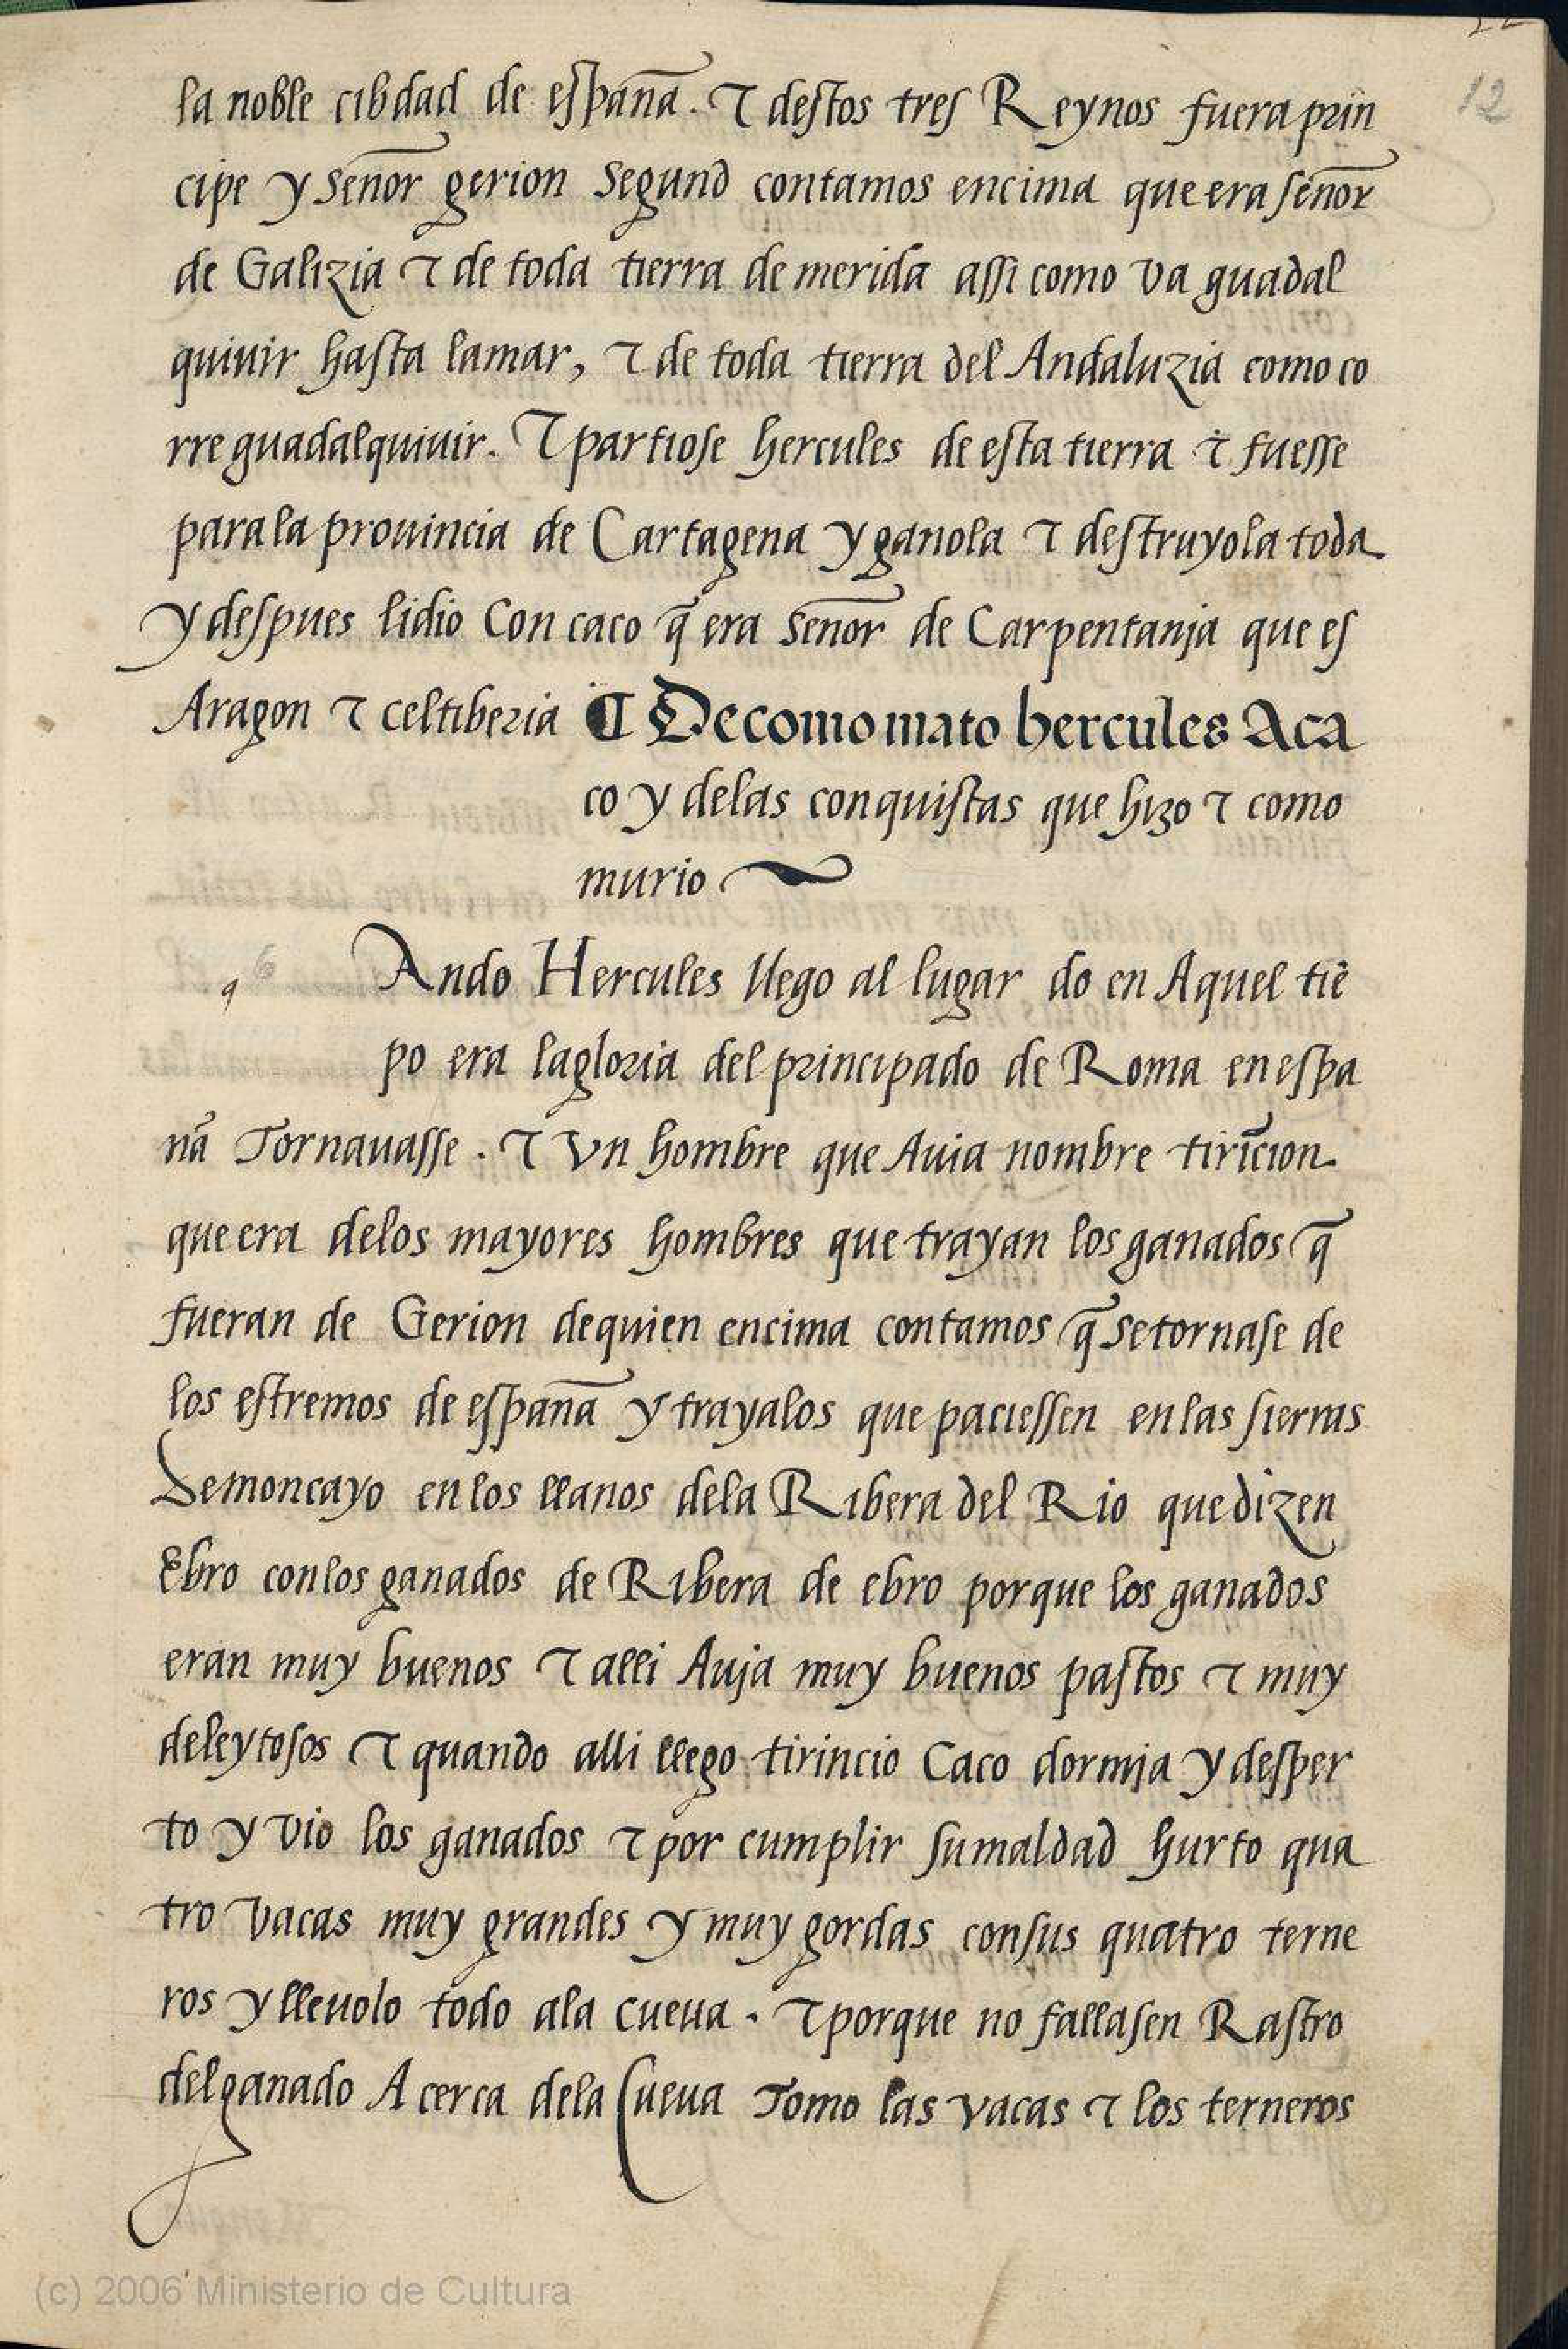 12
la noble cibdad de españa. τ destos tres Reynos fuera prin
cipe y señor gerion segund contamos encima que era señor
de Galizia τ de toda tierra de merida assi como va guadal
quiuir hasta lamar, τ de toda tierra del Andaluzia como co
rre guadalquiuir. τ partiose hercules de esta tierra τ fuesse
para la prouincia de Cartagena y ganola τ destruyola toda
y despues lidio Con caco q̃ era señor de Carpentanja que es
Aragon τ celtiberia ¶ De como mato hercules Aca
co y delas conquistas que hizo τ como
murio
q Ando Hercules llego al lugar do en Aquel tiẽ
po era la gloria del principado de Roma en espa
ña Tornauasse. τ Vn hombre que Auia nombre tiricion
que era delos mayores hombres que trayan los ganados q̃
fueran de Gerion de quien encima contamos q̃ se tornase de
los estremos de españa y trayalos que paciessen en las sierras
De moncayo en los llanos dela Ribera del Rio que dizen
Ebro con los ganados de Ribera de ebro porque los ganados
eran muy buenos τ alli Auja muy buenos pastos τ muy
deleytosos τ quando alli llego tirincio Caco dormja y desper
to y vio los ganados τ por cumplir su maldad hurto qua
tro vacas muy grandes y muy gordas con sus quatro terne
ros y lleuolo todo ala cueua. τ porque no fallasen Rastro
del ganado A cerca dela Cueua Tomo las vacas τ los terneros
(c) 2006 Ministerio de Cultura